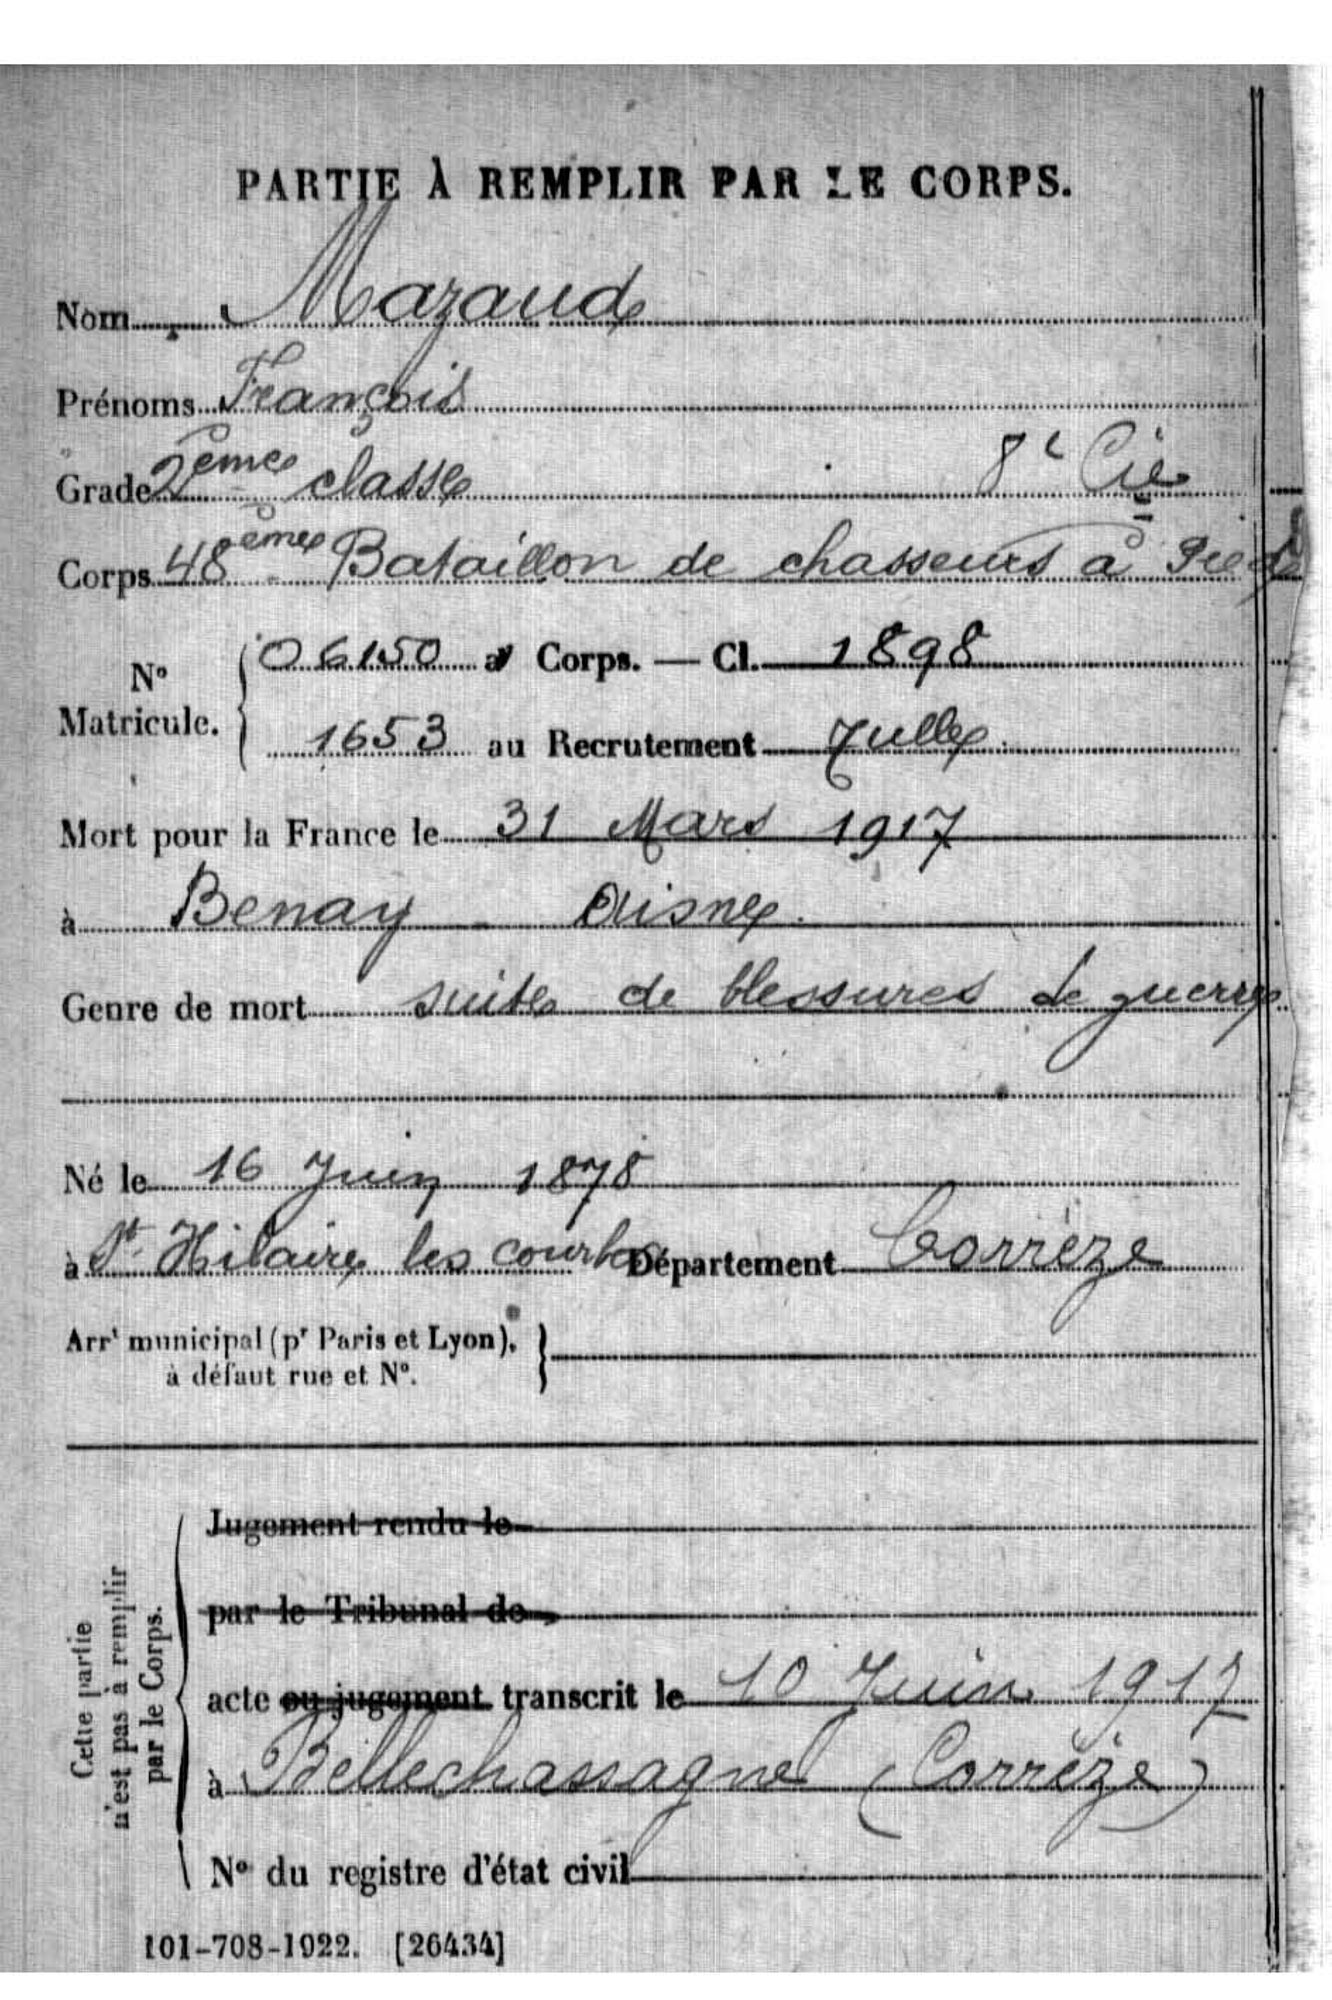 PARTIE À REMPLIR PAR LE CORPS.
Nom Mazaud
Prénoms François
Grade 2ème classe 8e Cie
Corps 48ème Bataillon de chasseurs à Pied
N° Matricule. 06150 au Corps. — Cl. 1898
1653 au Recrutement Tulle
Mort pour la France le 31 Mars 1917
à Benay Aisne
Genre de mort suite de blessures de guerre
Né le 16 Juin 1878
à St Hilaire les courbes Département Corrèze
Arrt municipal (pr Paris et Lyon),
à défaut rue et N°.
Cette partie
n'est pas à remplir
par le Corps.
Jugement rendu le
par le Tribunal de
acte ou jugement transcrit le 10 Juin 1917
à Bellechassagne (Corrèze)
N° du registre d'état civil
101-708-1922. [26434]